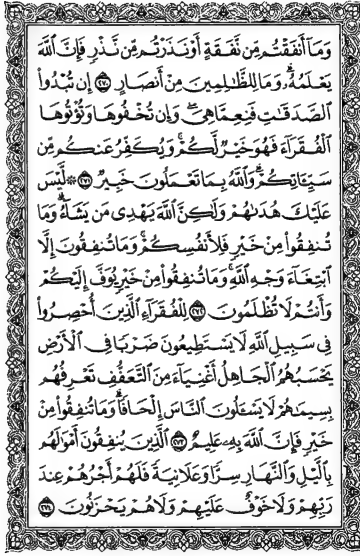 وَمَآ أَنفَقْتُم مِّن نَّفَقَةٍ أَوْ نَذَرْتُم مِّن نَّذْرٍ فَإِنَّ ٱللَّهَ
يَعْلَمُهُۥ ۗ وَمَا لِلظَّٰلِمِينَ مِنْ أَنصَارٍ ٢٧٠ إِن تُبْدُوا۟
ٱلصَّدَقَٰتِ فَنِعِمَّا هِىَ ۖ وَإِن تُخْفُوهَا وَتُؤْتُوهَا
ٱلْفُقَرَآءَ فَهُوَ خَيْرٌ لَّكُمْ ۚ وَيُكَفِّرُ عَنكُم مِّن
سَيِّـَٔاتِكُمْ ۗ وَٱللَّهُ بِمَا تَعْمَلُونَ خَبِيرٌ ٢٧١ ۞ لَّيْسَ
عَلَيْكَ هُدَىٰهُمْ وَلَٰكِنَّ ٱللَّهَ يَهْدِى مَن يَشَآءُ ۗ وَمَا
تُنفِقُوا۟ مِنْ خَيْرٍ فَلِأَنفُسِكُمْ ۚ وَمَا تُنفِقُونَ إِلَّا
ٱبْتِغَآءَ وَجْهِ ٱللَّهِ ۚ وَمَا تُنفِقُوا۟ مِنْ خَيْرٍ يُوَفَّ إِلَيْكُمْ
وَأَنتُمْ لَا تُظْلَمُونَ ٢٧٢ لِلْفُقَرَآءِ ٱلَّذِينَ أُحْصِرُوا۟
فِى سَبِيلِ ٱللَّهِ لَا يَسْتَطِيعُونَ ضَرْبًا فِى ٱلْأَرْضِ
يَحْسَبُهُمُ ٱلْجَاهِلُ أَغْنِيَآءَ مِنَ ٱلتَّعَفُّفِ تَعْرِفُهُم
بِسِيمَٰهُمْ لَا يَسْـَٔلُونَ ٱلنَّاسَ إِلْحَافًا ۗ وَمَا تُنفِقُوا۟ مِنْ
خَيْرٍ فَإِنَّ ٱللَّهَ بِهِۦ عَلِيمٌ ٢٧٣ ٱلَّذِينَ يُنفِقُونَ أَمْوَٰلَهُم
بِٱلَّيْلِ وَٱلنَّهَارِ سِرًّا وَعَلَانِيَةً فَلَهُمْ أَجْرُهُمْ عِندَ
رَبِّهِمْ وَلَا خَوْفٌ عَلَيْهِمْ وَلَا هُمْ يَحْزَنُونَ ٢٧٤